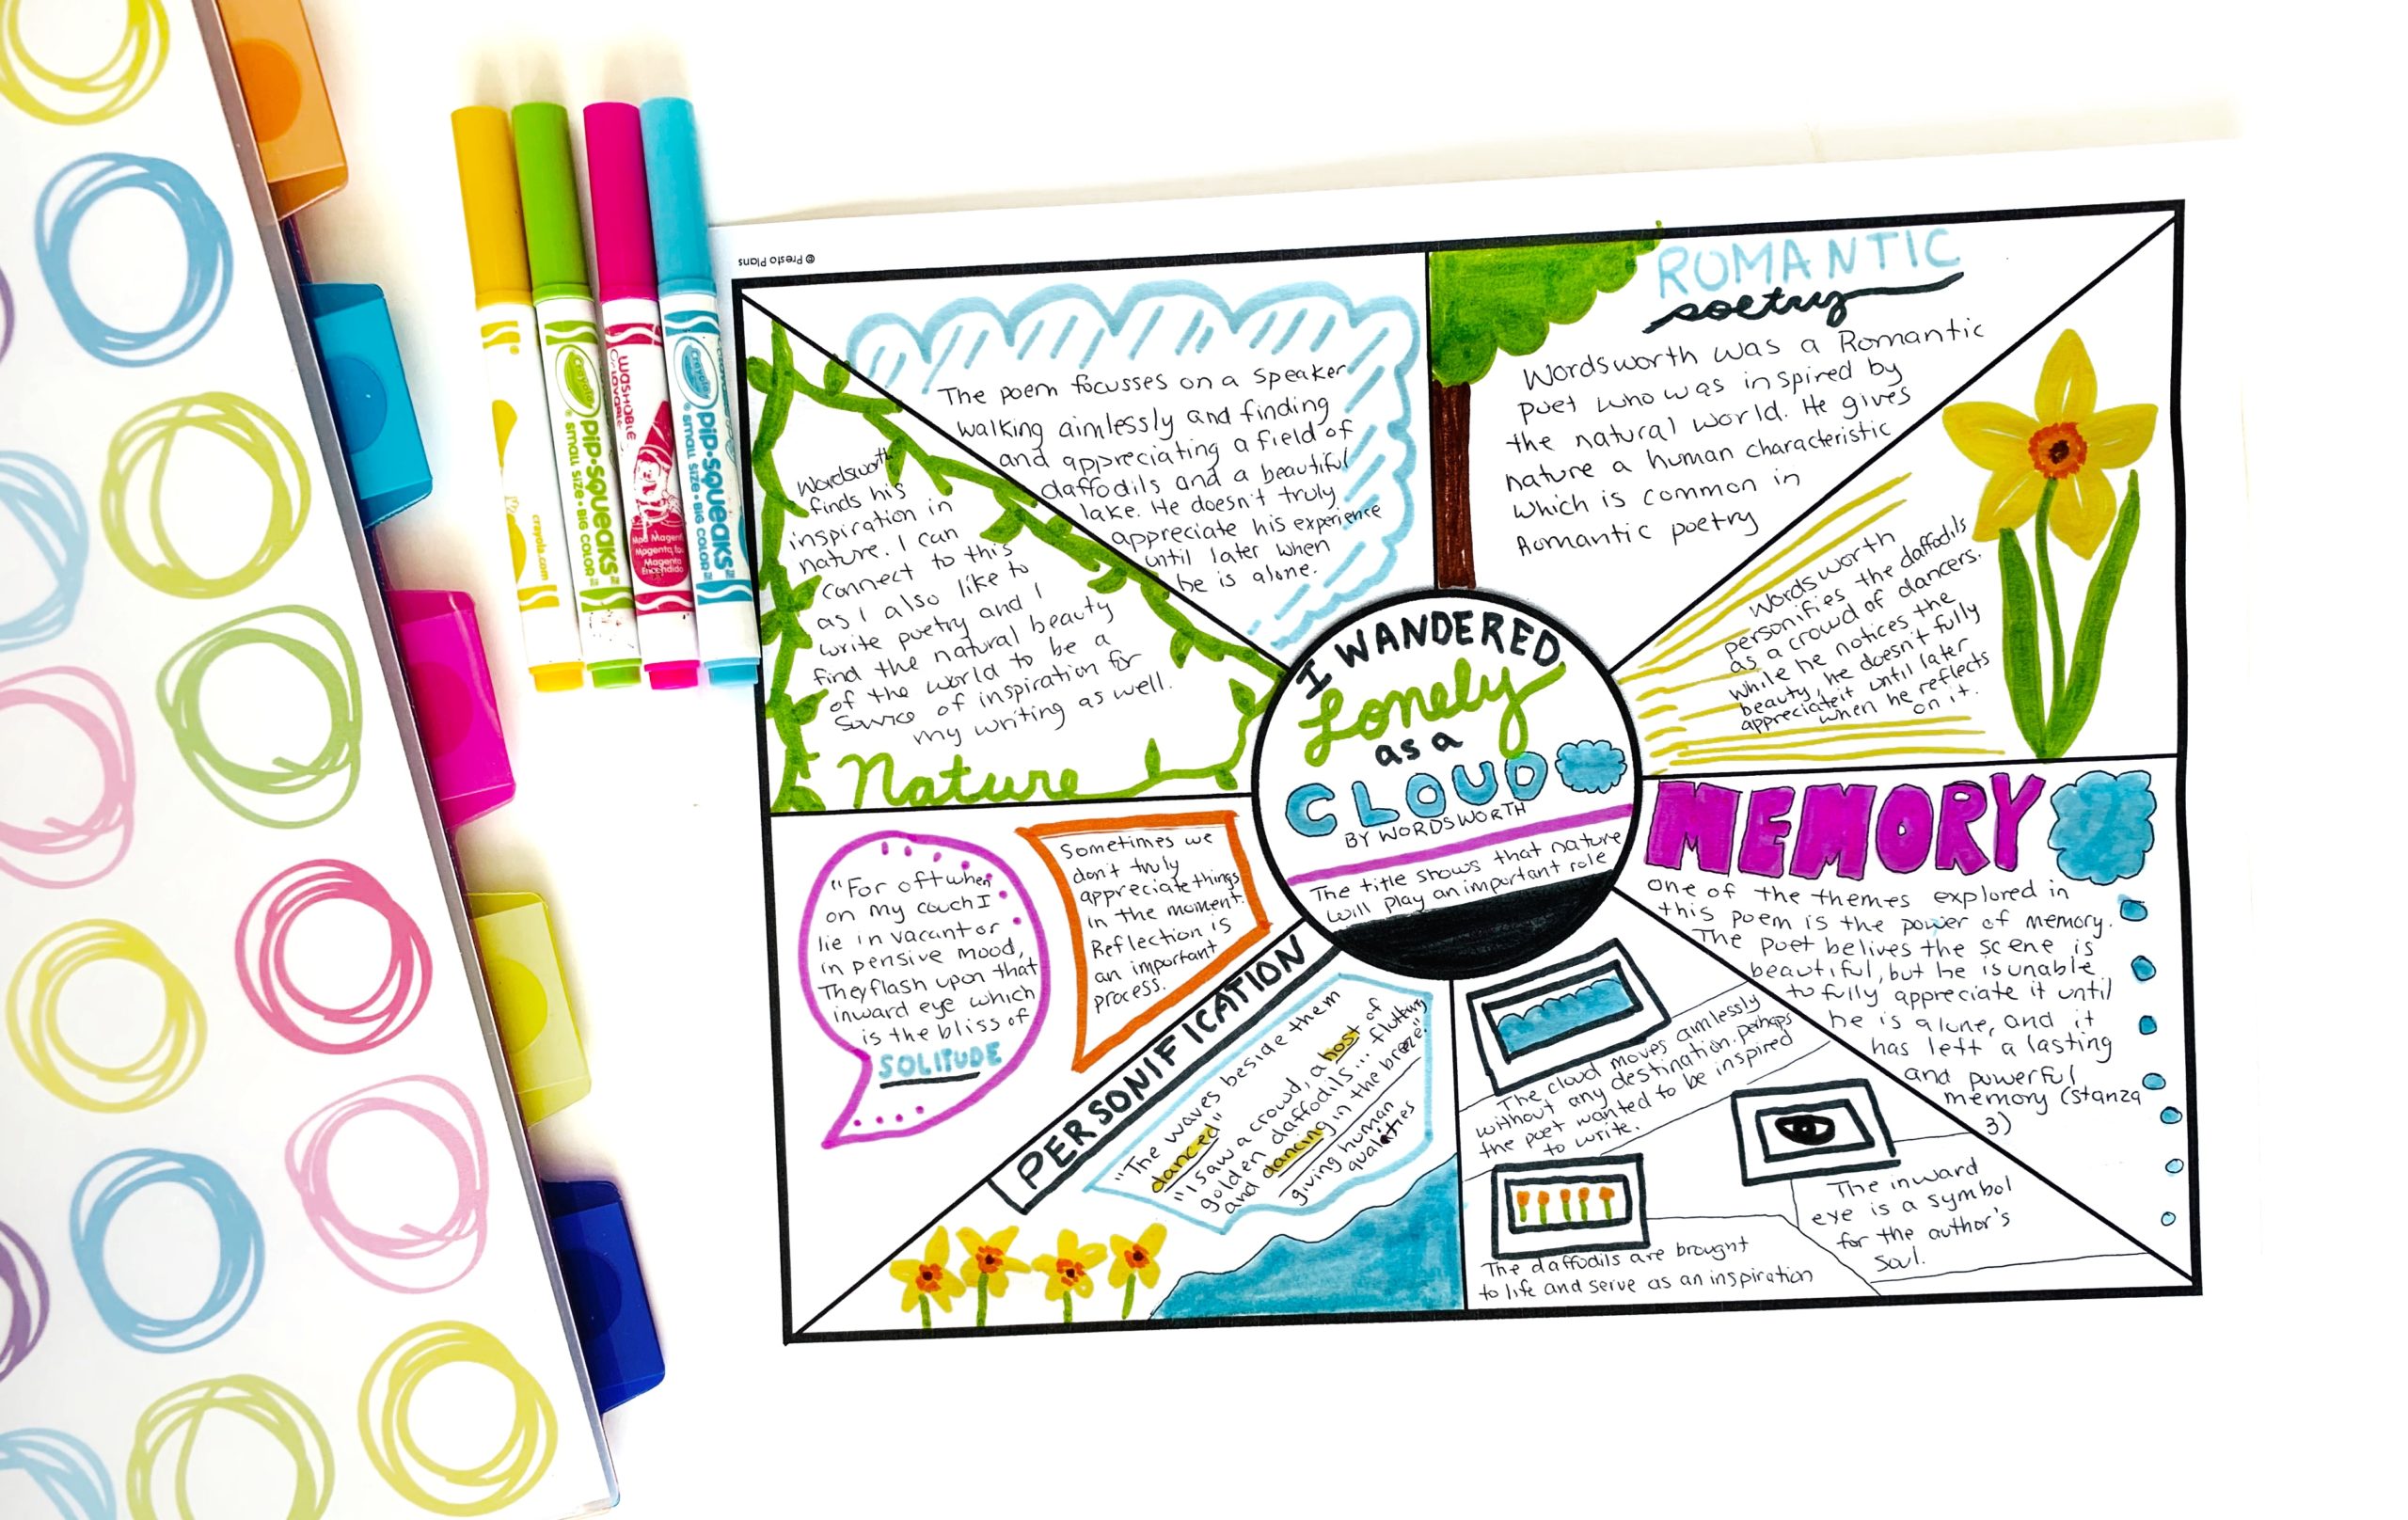 © Presto Plans
crayola.com
Crayola
PIP·SQUEAKS
SMALL SIZE • BIG COLOR
WASHABLE
Crayola
PIP·SQUEAKS
SMALL SIZE • BIG COLOR
I WANDERED
Lonely
as a
CLOUD
BY WORDSWORTH
The title shows that nature
will play an important role
The poem focusses on a speaker
walking aimlessly and finding
and appreciating a field of
daffodils and a beautiful
lake. He doesn't truly
appreciate his experience
until later when
he is alone.
ROMANTIC
poetry
Wordsworth was a Romantic
poet who was inspired by
the natural world. He gives
nature a human characteristic
which is common in
Romantic poetry
Wordsworth
personifies the daffodils
as a crowd of dancers.
While he notices the
beauty, he doesn't fully
appreciate it until later
when he reflects
on it.
MEMORY
one of the themes explored in
this poem is the power of memory.
The poet belives the scene is
beautiful, but he is unable
to fully appreciate it until
he is alone, and it
has left a lasting
and powerful
memory (stanza
3)
The cloud moves aimlessly
without any destination. perhaps
the poet wanted to be inspired
to write.
The inward
eye is a symbol
for the author's
soul.
The daffodils are brought
to life and serve as an inspiration
PERSONIFICATION
"The waves beside them
danced"
"I saw a crowd, a host of
golden daffodils... fluttering
and dancing in the breeze"
giving human
qualities
"For oft when
on my couch I
lie in vacant or
in pensive mood,
They flash upon that
inward eye which
is the bliss of
SOLITUDE
Sometimes we
don't truly
appreciate things
in the moment.
Reflection is
an important
process.
Wordsworth
finds his
inspiration in
nature. I can
connect to this
as I also like to
write poetry and I
find the natural beauty
of the world to be a
source of inspiration for
my writing as well.
Nature